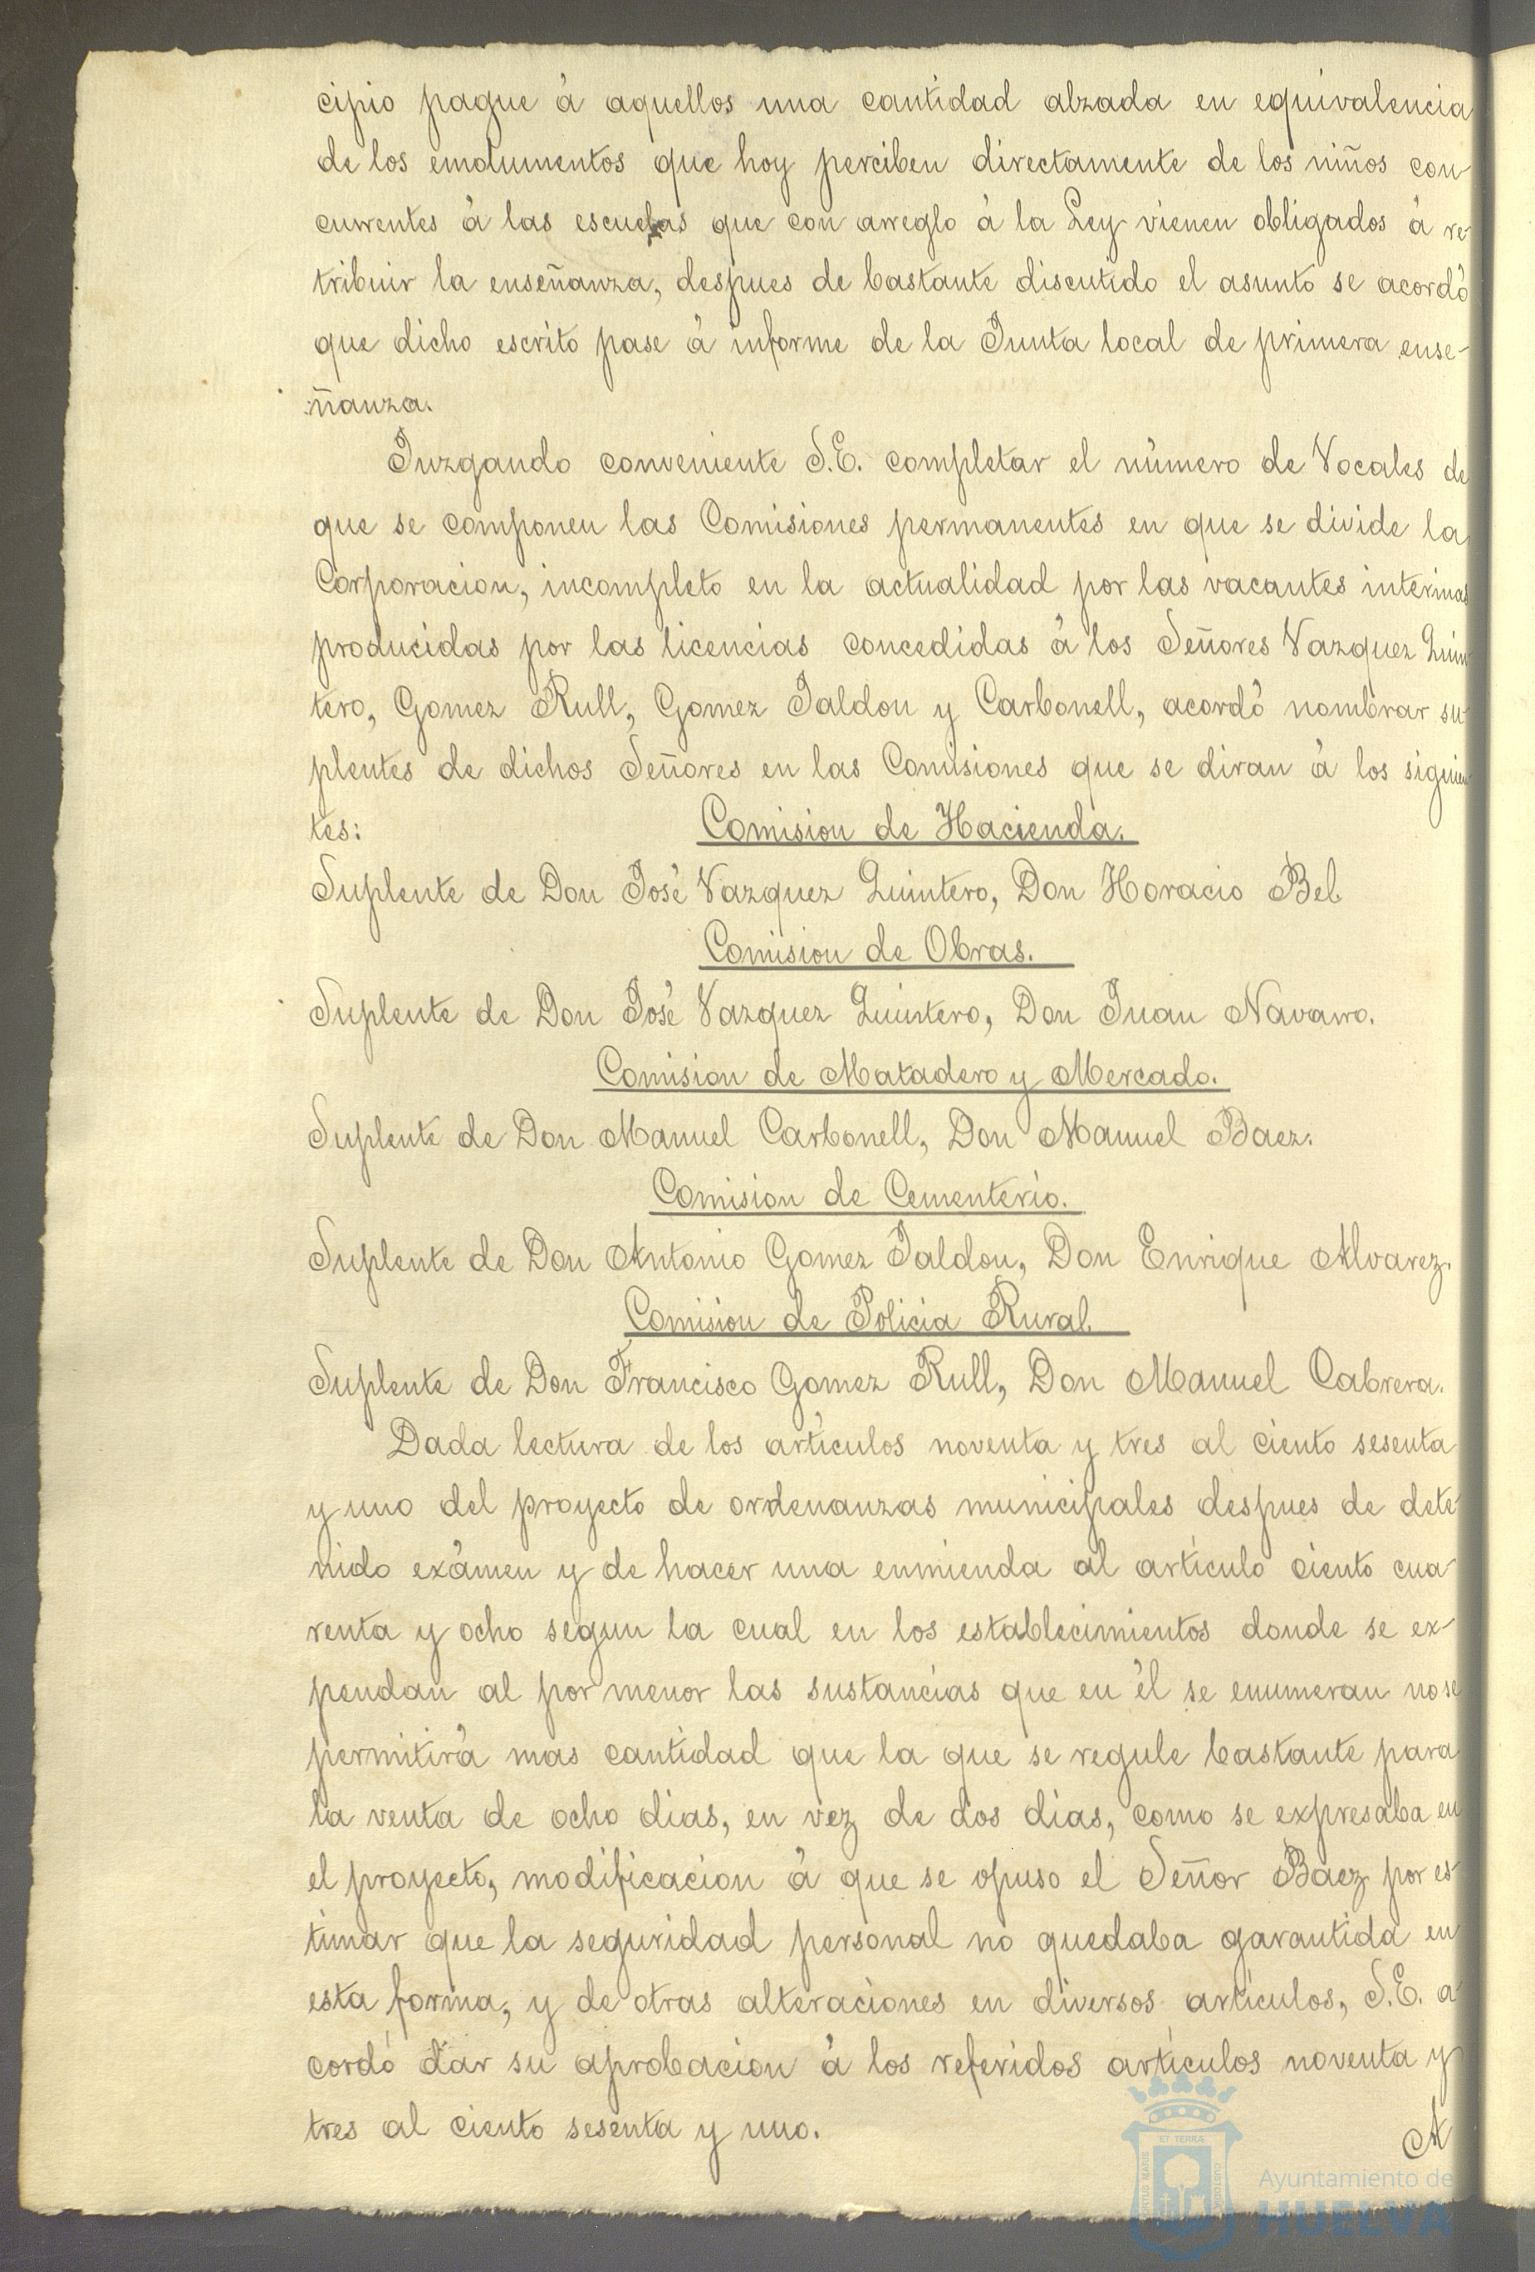 cipio pague á aquellos una cantidad alzada en equivalencia
de los emolumentos que hoy perciben directamente de los niños con
currentes á las escuelas que con arreglo á la Ley vienen obligados á re
tribuir la enseñanza, despues de bastante discutido el asunto se acordó
que dicho escrito pase á informe de la Junta local de primera ense-
ñanza.
Juzgando conveniente S.E. completar el número de Vocales de
que se componen las Comisiones permanentes en que se divide la
Corporacion, incompleto en la actualidad por las vacantes interinas
producidas por las licencias concedidas á los Señores Vazquez Quin
tero, Gomez Rull, Gomez Jaldon y Carbonell, acordó nombrar su
plentes de dichos Señores en las Comisiones que se diran á los siguien
tes: Comision de Hacienda.
Suplente de Don José Vazquez Quintero, Don Horacio Bel
Comision de Obras.
Suplente de Don José Vazquez Quintero, Don Juan Navarro.
Comision de Matadero y Mercado.
Suplente de Don Manuel Carbonell, Don Manuel Baez.
Comision de Cementerio.
Suplente de Don Antonio Gomez Jaldon, Don Enrique Alvarez.
Comision de Policia Rural.
Suplente de Don Francisco Gomez Rull, Don Manuel Cabrera.
Dada lectura de los artículos noventa y tres al ciento sesenta
y uno del proyecto de ordenanzas municipales despues de dete
nido exámen y de hacer una enmienda al artículo ciento cua
renta y ocho segun la cual en los establecimientos donde se ex-
pendan al por menor las sustancias que en él se enumeran no se
permitirá mas cantidad que la que se regule bastante para
la venta de ocho dias, en vez de dos dias, como se expresaba en
el proyecto, modificacion á que se opuso el Señor Baez por es-
timar que la seguridad personal no quedaba garantida en
esta forma, y de otras alteraciones en diversos artículos, S.E. a-
cordó dar su aprobacion á los referidos artículos noventa y
tres al ciento sesenta y uno.
A
Ayuntamiento de
HUELVA